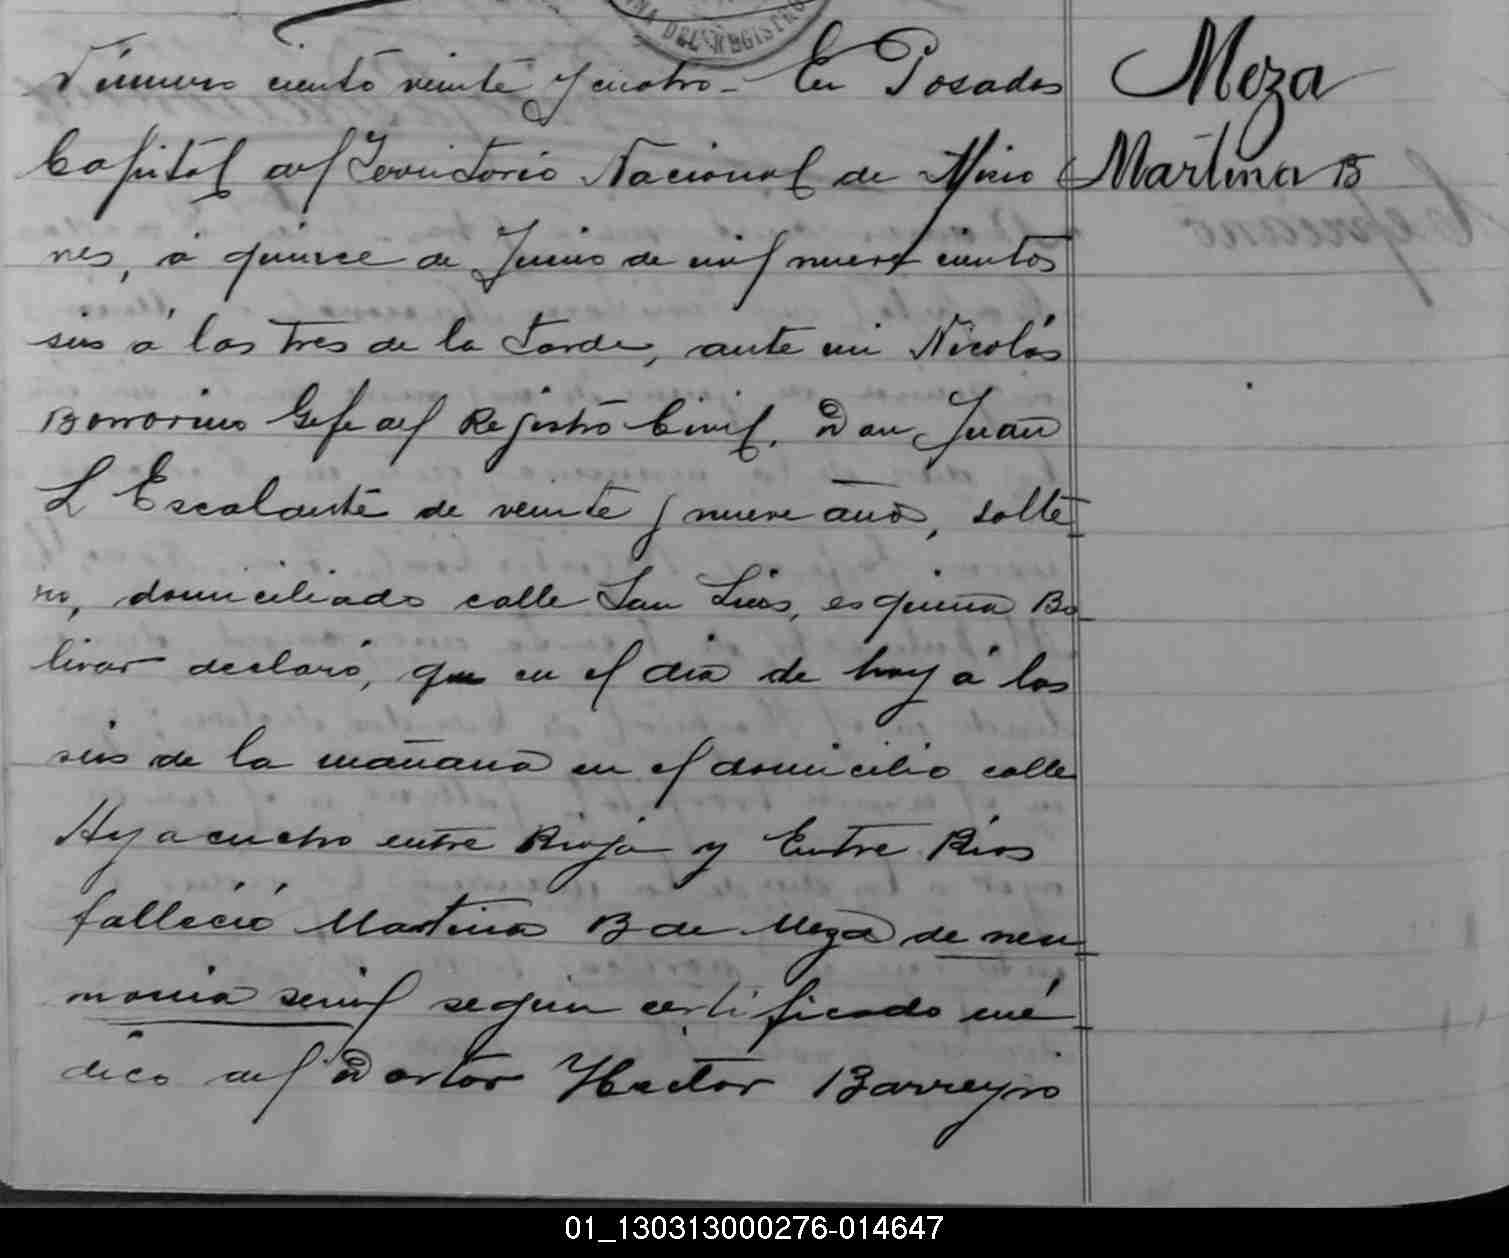 Número ciento veinte y cuatro - En Posadas
Capital del Territorio Nacional de Misio
nes, á quince de Junio de mil nueve cientos
seis á las tres de la tarde, ante mi Nicolás
Bonorino Gefe del Registro Civil. Don Juan
L Escalante de veinte y nueve años, solte
ro, domiciliado calle San Luis, esquina Bo
livar declaró, que en el dia de hoy á las
seis de la mañana en el domicilio calle
Ayacucho entre Rioja y Entre Rios
falleció Martina B de Meza de neu
monia senil segun certificado mé
dico del Doctor Hector Barreyro
Meza
Martina B
01_130313000276-014647